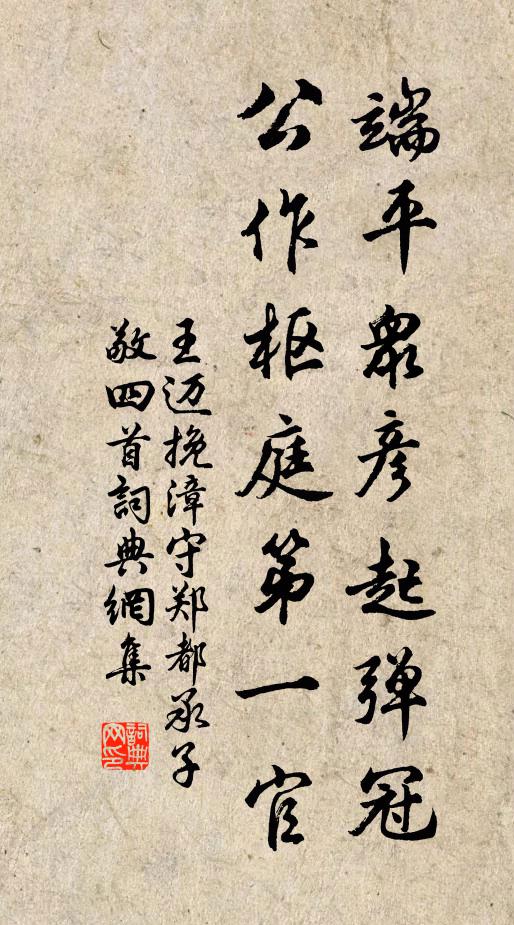 端平眾彥起弹冠
公作枢庭第一官
王迈挽漳守郑都承子
敬四首詞典網集
詞典网印